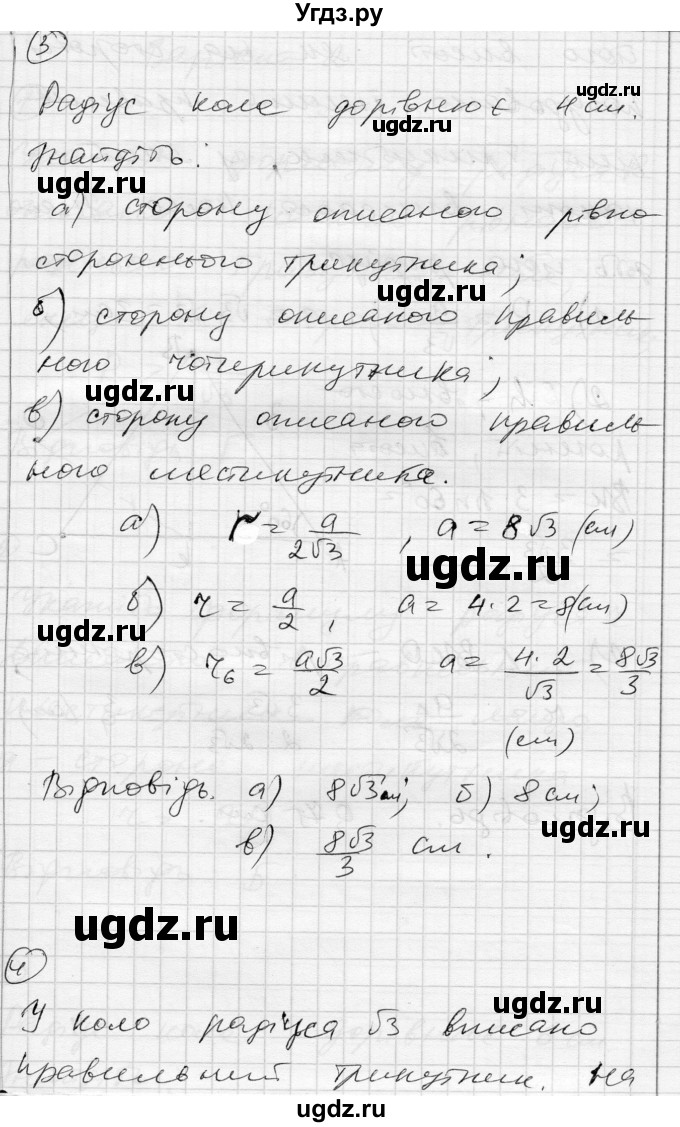 Угдз.ру
3
Радіус кола дорівнює 4 см.
ugdz.ru
ugdz.ru
Знайдіть:
ugdz.ru
а) сторону описаного рівно
стороннього трикутника;
ugdz.ru
б) сторону описаного правиль
ного чотирикутника;
ugdz.ru
в) сторону описаного правиль
ного шестикутника.
а) r = a/2√3, a = 8√3 (см)
ugdz.ru
б) r = a/2, a = 4·2 = 8(см)
ugdz.ru
в) r₆ = a√3/2 a = 4·2/√3 = 8√3/3
(см)
Відповідь. а) 8√3 см; б) 8 см;
ugdz.ru
в) 8√3/3 см.
ugdz.ru
4
ugdz.ru
У коло радіуса √3 вписано
правильний трикутник. На
ugdz.ru